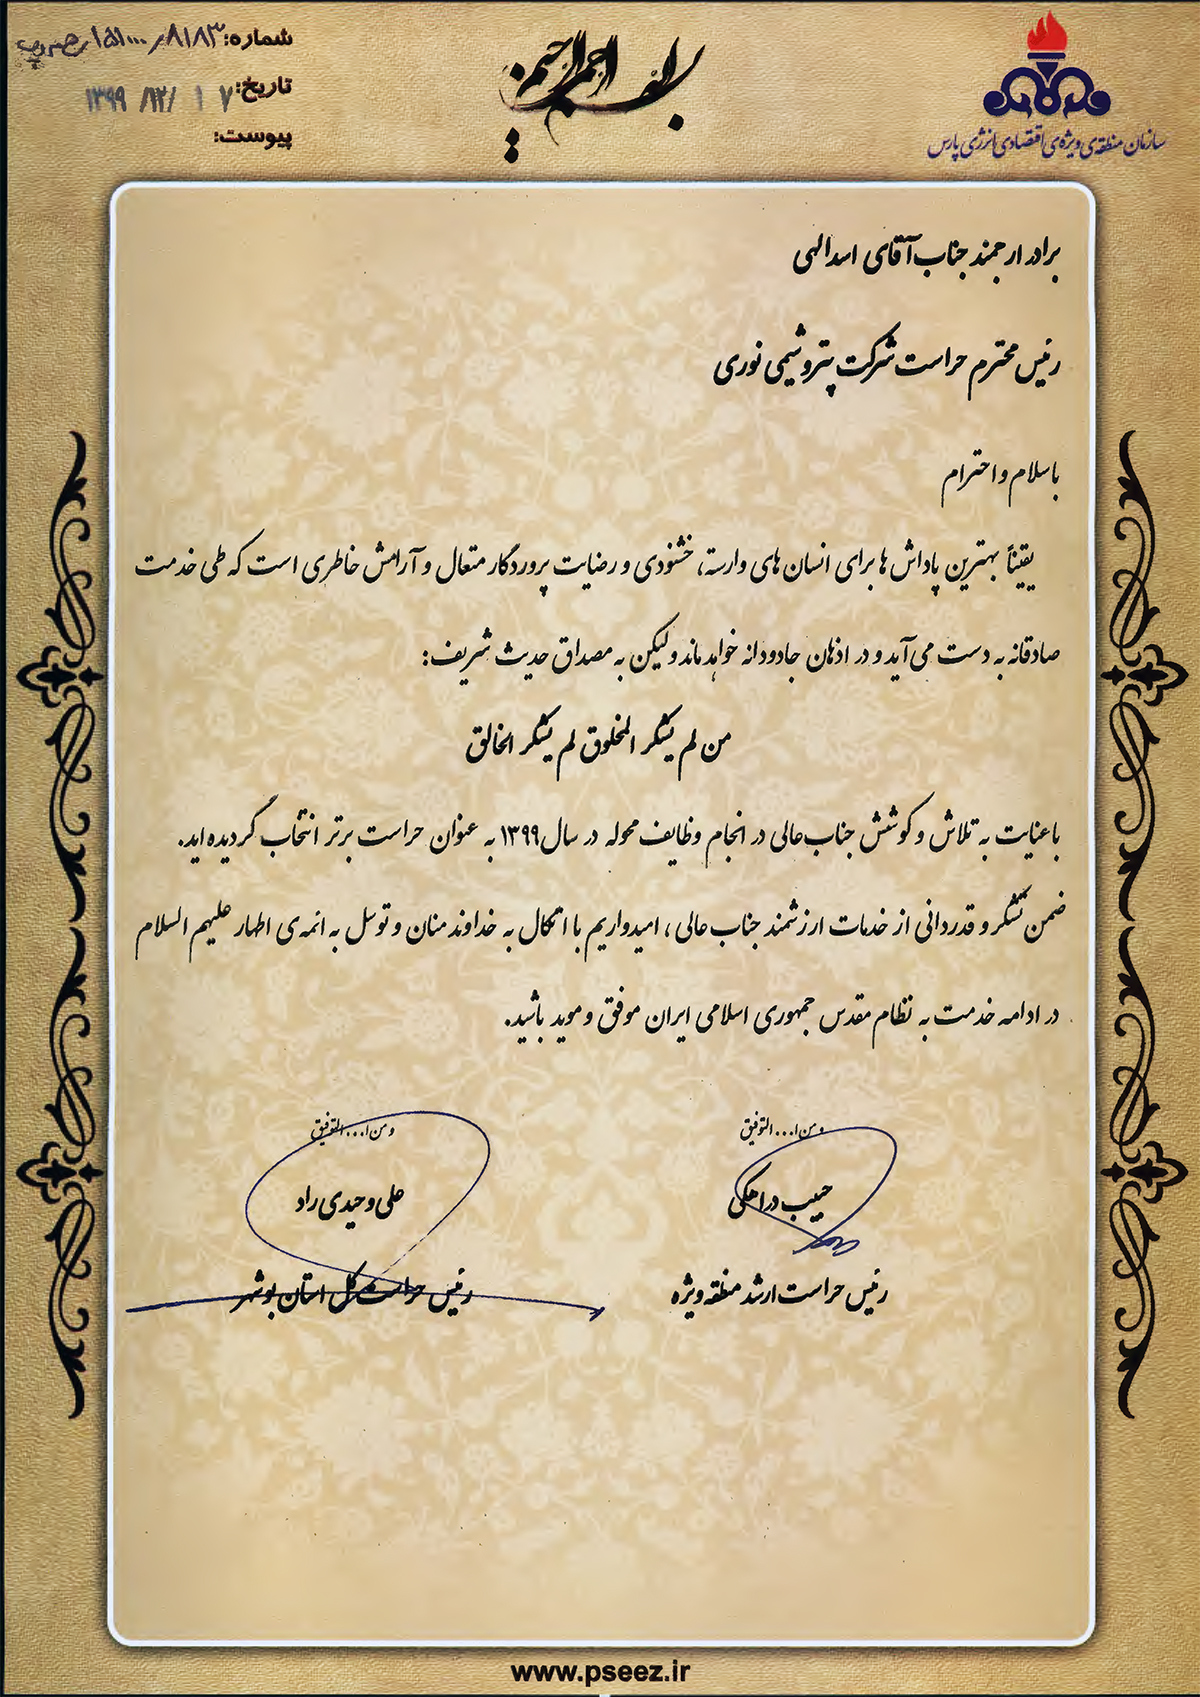 بسم الله الرحمن الرحیم
سازمان منطقه‌ی ویژه‌ی اقتصادی انرژی پارس
شماره:
تاریخ: ۱۳۹۹ /۱۲/ ۱۷
پیوست:
برادر ارجمند جناب آقای اسدالهی
رئیس محترم حراست شرکت پتروشیمی نوری
با سلام و احترام
یقیناً بهترین پاداش ها برای انسان های وارسته، خشنودی و رضایت پروردگار متعال و آرامش خاطری است که طی خدمت
صادقانه به دست می آید و در اذهان جاودانه خواهد ماند ولیکن به مصداق حدیث شریف:
من لم یشکر المخلوق لم یشکر الخالق
با عنایت به تلاش و کوشش جناب عالی در انجام وظایف محوله در سال ۱۳۹۹ به عنوان حراست برتر انتخاب گردیده اید.
ضمن تشکر و قدردانی از خدمات ارزشمند جناب عالی، امیدواریم با اتکال به خداوند منان و توسل به ائمه ی اطهار علیهم السلام
در ادامه خدمت به نظام مقدس جمهوری اسلامی ایران موفق و موید باشید.
و من ا... التوفیق
حبیب دراهکی
رئیس حراست ارشد منطقه ویژه
و من ا... التوفیق
علی وحیدی راد
رئیس حراست کل استان بوشهر
www.pseez.ir